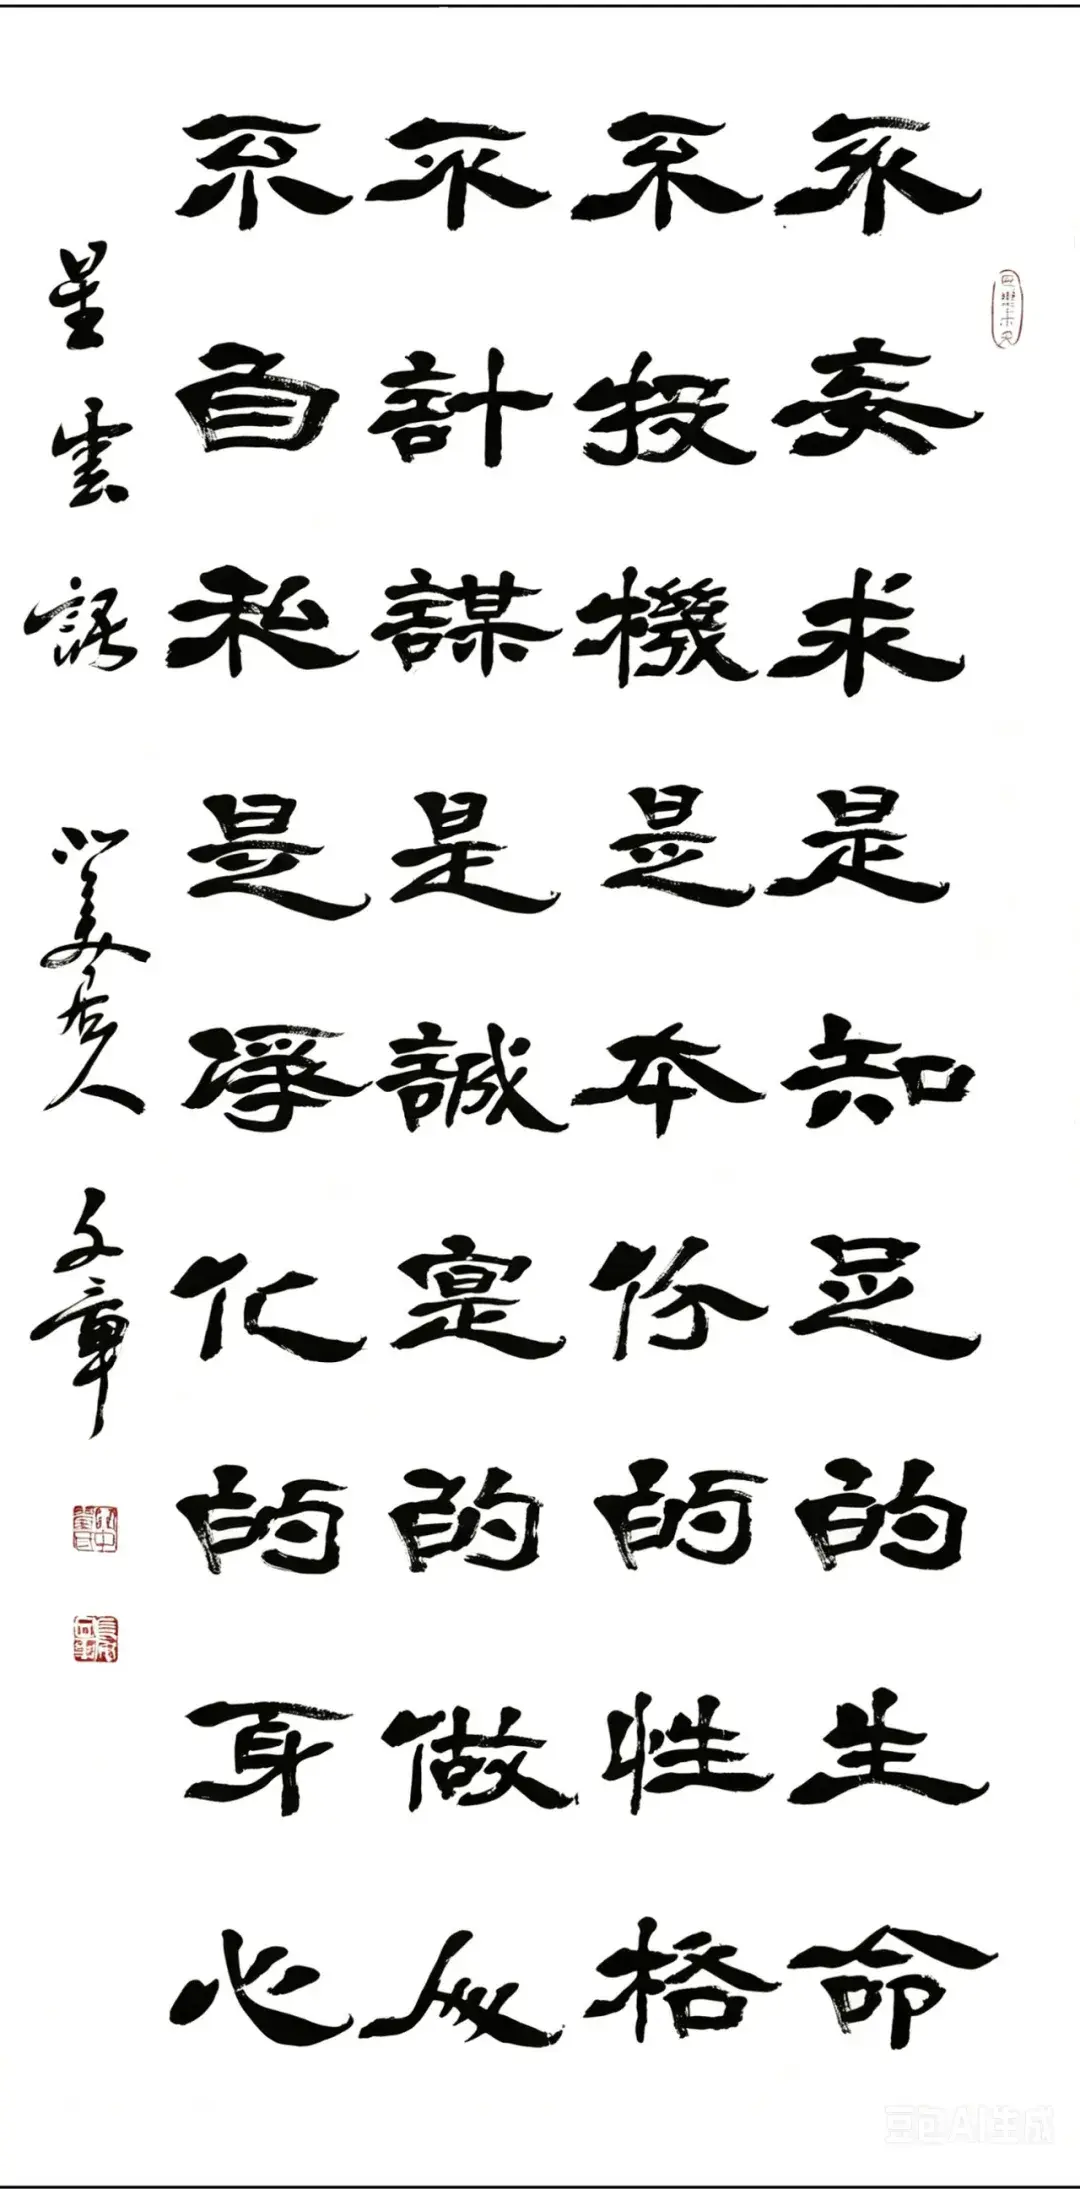 不妄求是知足的生命
不投機是本份的性格
不計謀是誠寔的做人
不自私是淨化的身心
星雲語
文章
豆包AI生成